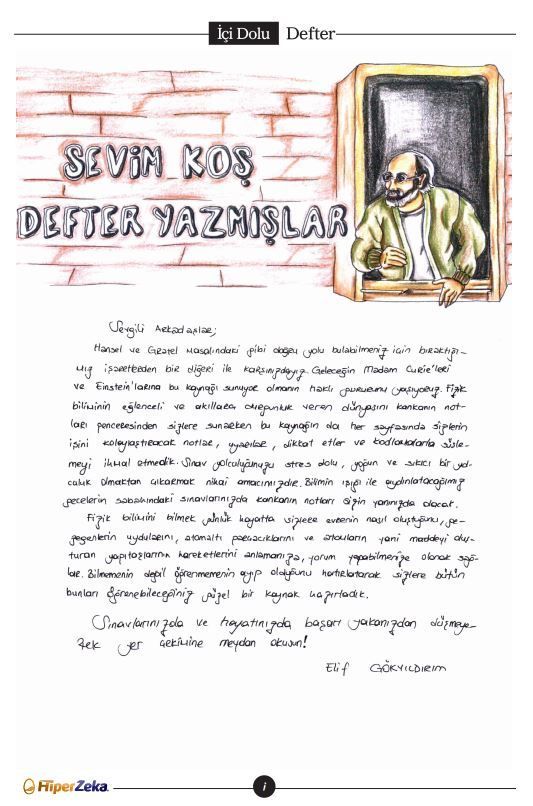 İçi Dolu Defter
SEVİM KOŞ
DEFTER YAZMIŞLAR
Sevgili Arkadaşlar;
Hansel ve Gratel Masalındaki gibi doğru yolu bulabilmeniz için bıraktığı-
mız işaretlerden bir diğeri ile karşınızdayız. Geleceğin Madam Curie'leri
ve Einstein'larına bu kaynağı sunuyor olmanın haklı gururunu yaşıyoruz. Fizik
biliminin eğlenceli ve akıllara durgunluk veren dünyasını kankanın not-
ları penceresinden sizlere sunarken bu kaynağın da her sayfasında sizlerin
işini kolaylaştıracak notlar, uyarılar, dikkat etler ve kodlamalarla süsle-
meyi ihmal etmedik. Sınav yolculuğunuzu stres dolu, yoğun ve sıkıcı bir yol-
culuk olmaktan çıkarmak nihai amacımızdır. Bilimin ışığı ile aydınlatacağımız
gecelerin sabahındaki sınavlarınızda kankanın notları sizin yanınızda olacak.
Fizik bilimini bilmek günlük hayatta sizlere evrenin nasıl oluştuğunu, ge-
zegenlerin uydularını, atomaltı parçacıklarını ve atomların yani maddeyi oluş-
turan yapıtaşlarının hareketlerini anlamanıza, yorum yapabilmenize olanak sağ-
lar. Bilmemenin değil öğrenmemenin ayıp olduğunu hatırlatarak sizlere bütün
bunları öğrenebileceğiniz güzel bir kaynak hazırladık.
Sınavlarınızda ve hayatınızda başarı yakanızdan düşmeye-
rek yer çekimine meydan okusun!
Elif GÖKYILDIRIM
HiperZeka
i